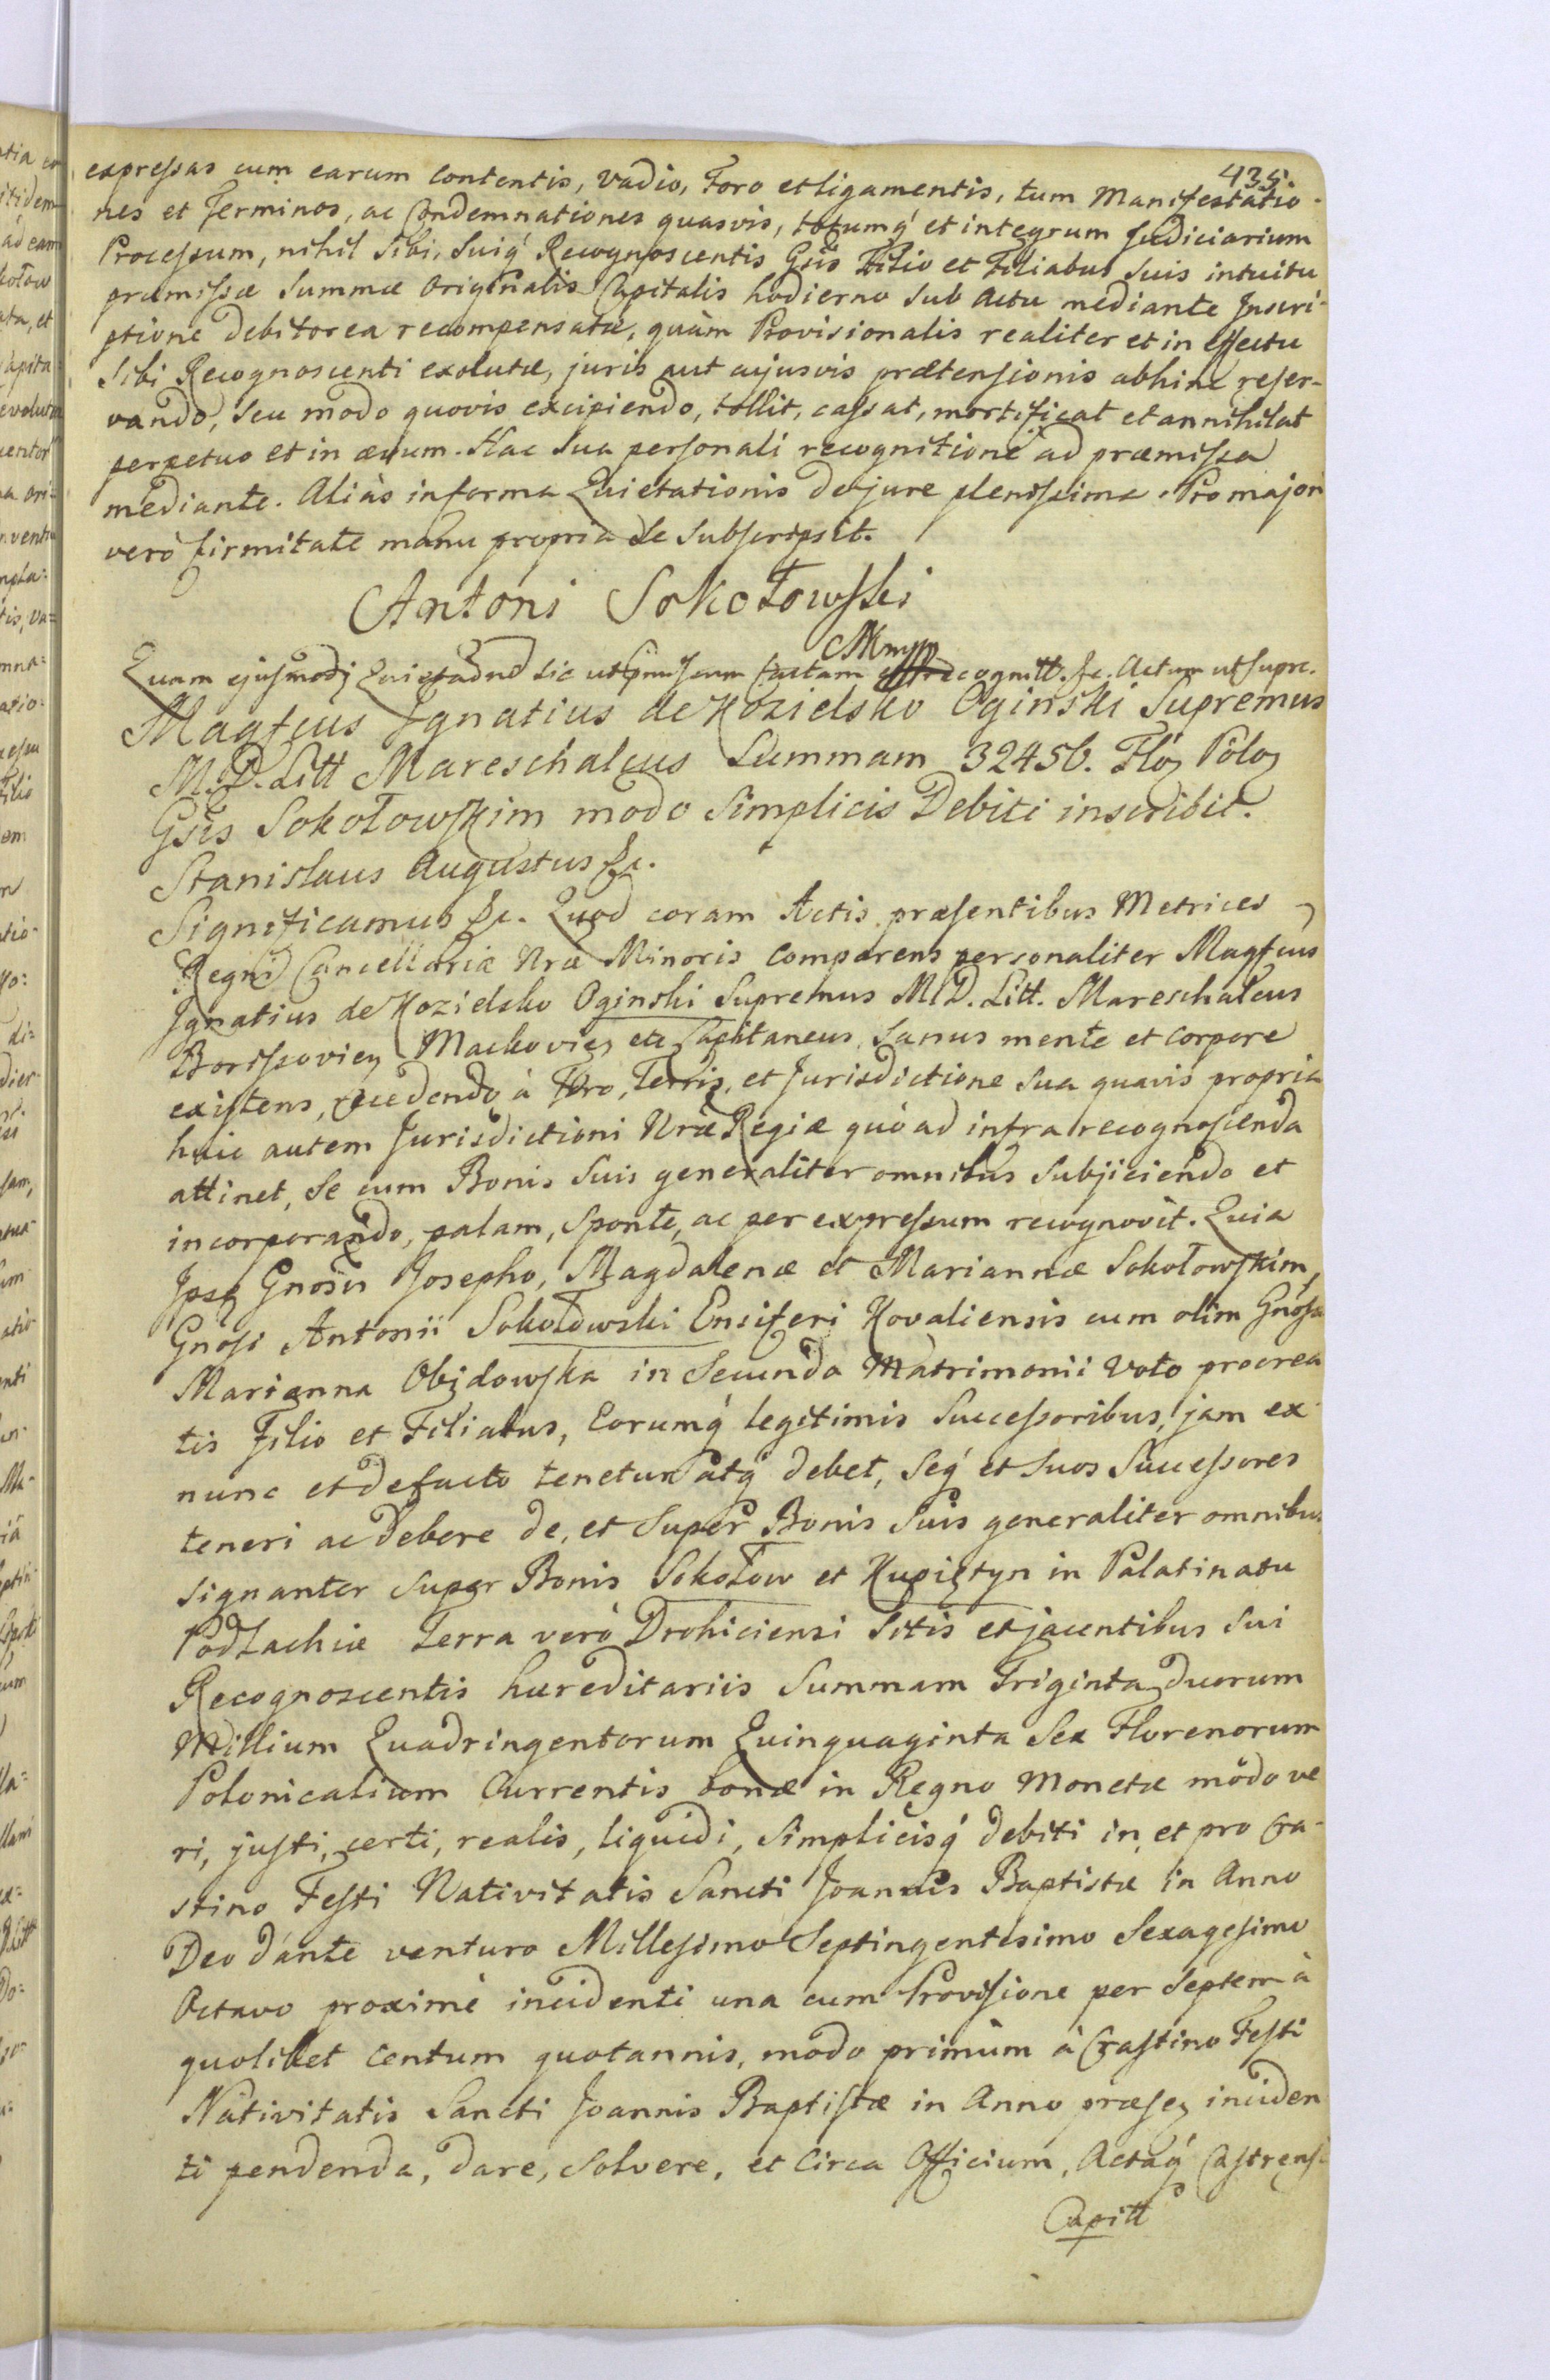 435.
expressas cum earum contentis, vadio, Foro et ligamentis, tum Manifestatio-
nes et Terminos, ac Condemnationes quasvis, totumq́ et integrum Judiciarium
Processum, nihil Sibi, Suiq́ Recognoscentis Gsis Filio et Filiabus Suis intuitu
præmissæ Summæ Originalis Capitalis hodierno Sub Actu mediante Inscri-
ptione Debitorea recompensatæ, quàm Provisionalis realiter et in effectu
Sibi Recognoscenti exolutæ, juris aut cujusvis prætensionis abhinc reser-
vando, Seu modo quovis excipiendo, tollit, cassat, mortificat et annihilat
perpetuo et in ævum. Hac Sua personali recognitione ad præmissa
mediante. Aliàs in forma Quietationis de jure plenissima. Pro majori
verò firmitate manu propria Se Subscripsit.
Antoni Sokołowski
Quam ejusmodi sic ut factam recognitt. &c. Actum ut supra.
Magfcus Ignatius de Kozielsko Oginski Supremus
M. D. Litt Mareschalcus Summam 32456. Floꝫ Poloꝫ
Gsis Sokołowskim modo Simplicis Debiti inscribit.
Stanislaus Augustus &c.
Significamus &c. Quod coram Actis præsentibus Metrices
Regni Cancellariæ Nræ Minoris comparens personaliter Magfcus
Ignatius de Kozielsko Oginski Supremus M. D. Litt. Mareschalcus
Borissovieꝫ Mackovieꝫ etc Capitaneus, Sanus mente et corpore
existens, recedendo à Foro, Terris, et Jurisdictione Sua quavis propria
huic autem Jurisdictioni Nræ Regiæ quò ad infra recognoscenda
attinet, Se cum Bonis Suis generaliter omnibus Subjiciendo et
incorporando, palam, Sponte, ac per expressum recognovit. Quia
Ipse Gnosis Josepho, Magdalenæ et Mariannæ Sokołowskim,
Gnosi Antonii Sokołowski Ensiferi Kovaliensis cum olim Gnosa
Marianna Obidowska in Secundo Matrimonii Voto procrea
tis Filio et Filiabus, Eorumq́ legitimis Successoribus, jam ex
nunc et de facto tenetur atq́ debet, Seq́ et Suos Successores
teneri ac debere de, et Super Bonis Suis generaliter omnibus
signanter Super Bonis Sokołow et Kupiętyn in Palatinatu
Podlachiæ Terra verò Drohiciensi Sitis et jacentibus Sui
Recognoscentis hæreditariis Summam Triginta duorum
Millium Quadringentorum Quinquaginta Sex Florenorum
Polonicalium Currentis bonæ in Regno Monetæ modo ve
ri, justi, certi, realis, liquidi, Simplicisq́ debiti in, et pro Cra-
stino Festi Nativitatis Sancti Joannis Baptistæ in Anno
Deo dante venturo Millesimo Septingentesimo Sexagesimo
Octavo proximè incidenti una cum Provisione per Septem à
quolibet Centum quotannis, modo primùm à Crastino Festi
Nativitatis Sancti Joannis Baptistæ in Anno præseꝫ inciden
ti pendenda, dare, Solvere, et circa Officium, Actaq́ Castrensi
Capitt